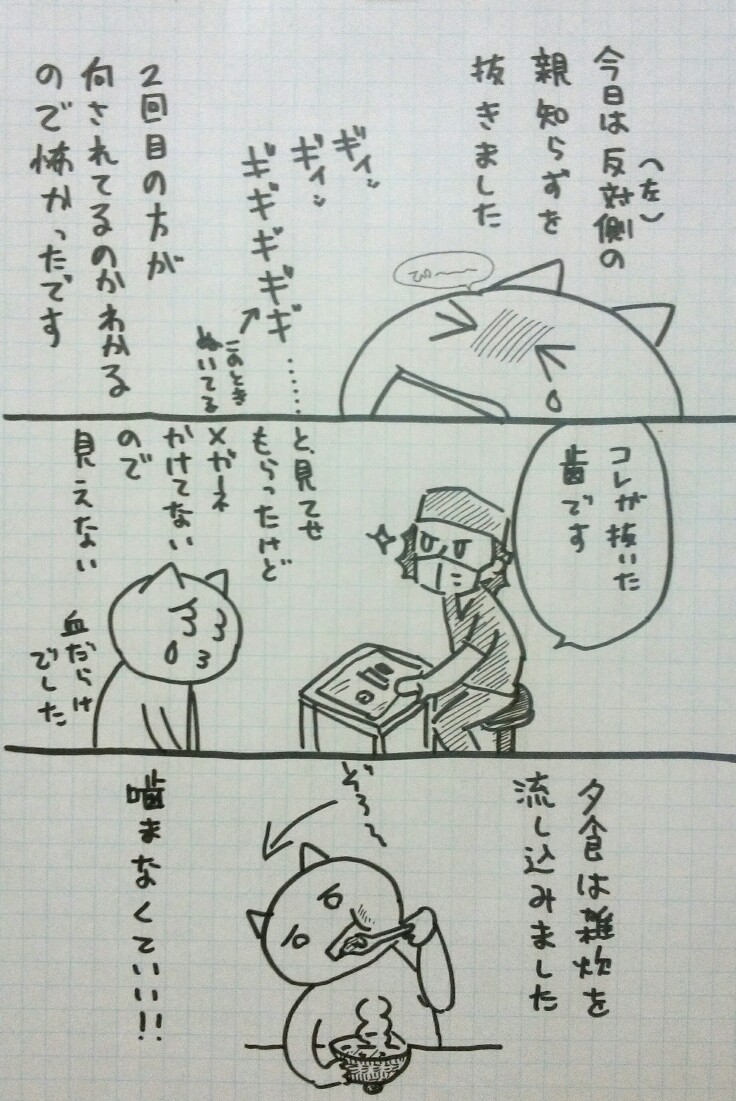 今日は反対側の
(左)
親知らずを
抜きました
ぴーーー
ギィッ
ギィッ
ギギギギギ……
このとき
ぬいてる
2回目の方が
何されてるのかわかる
ので怖かったです
コレが抜いた
歯です
と、見てせ
もらったけど
メガーネ
かけてない
ので
見えない
血だらけ
でした
夕食は雑炊を
流し込みました
ぞろ〜
噛まなくていい!!